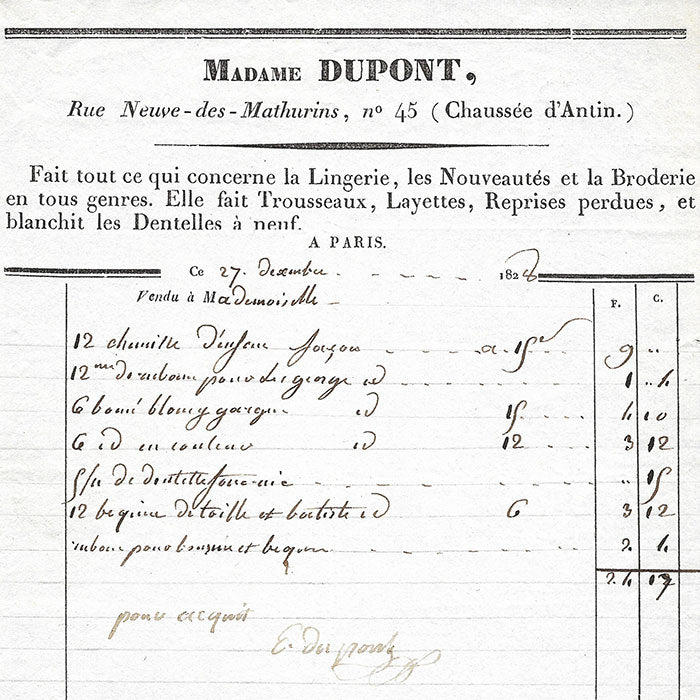 MADAME DUPONT,
Rue Neuve-des-Mathurins, nº 45 (Chaussée d'Antin.)
Fait tout ce qui concerne la Lingerie, les Nouveautés et la Broderie
en tous genres. Elle fait Trousseaux, Layettes, Reprises perdues, et
blanchit les Dentelles à neuf.
A PARIS.
Ce 27. Dexembre 1828
Vendu à Mademoiselle
F. C.
12 d'enfant façon a 15 9 "
12 pour id 1 " 4
6 id 15 4 10
6 id en couleur id 12 3 12
de dentelle " 15
12 beguin de toille et batiste id 6 3 12
pour et beguin 2 4
24 17
pour acquit
E. Dupont